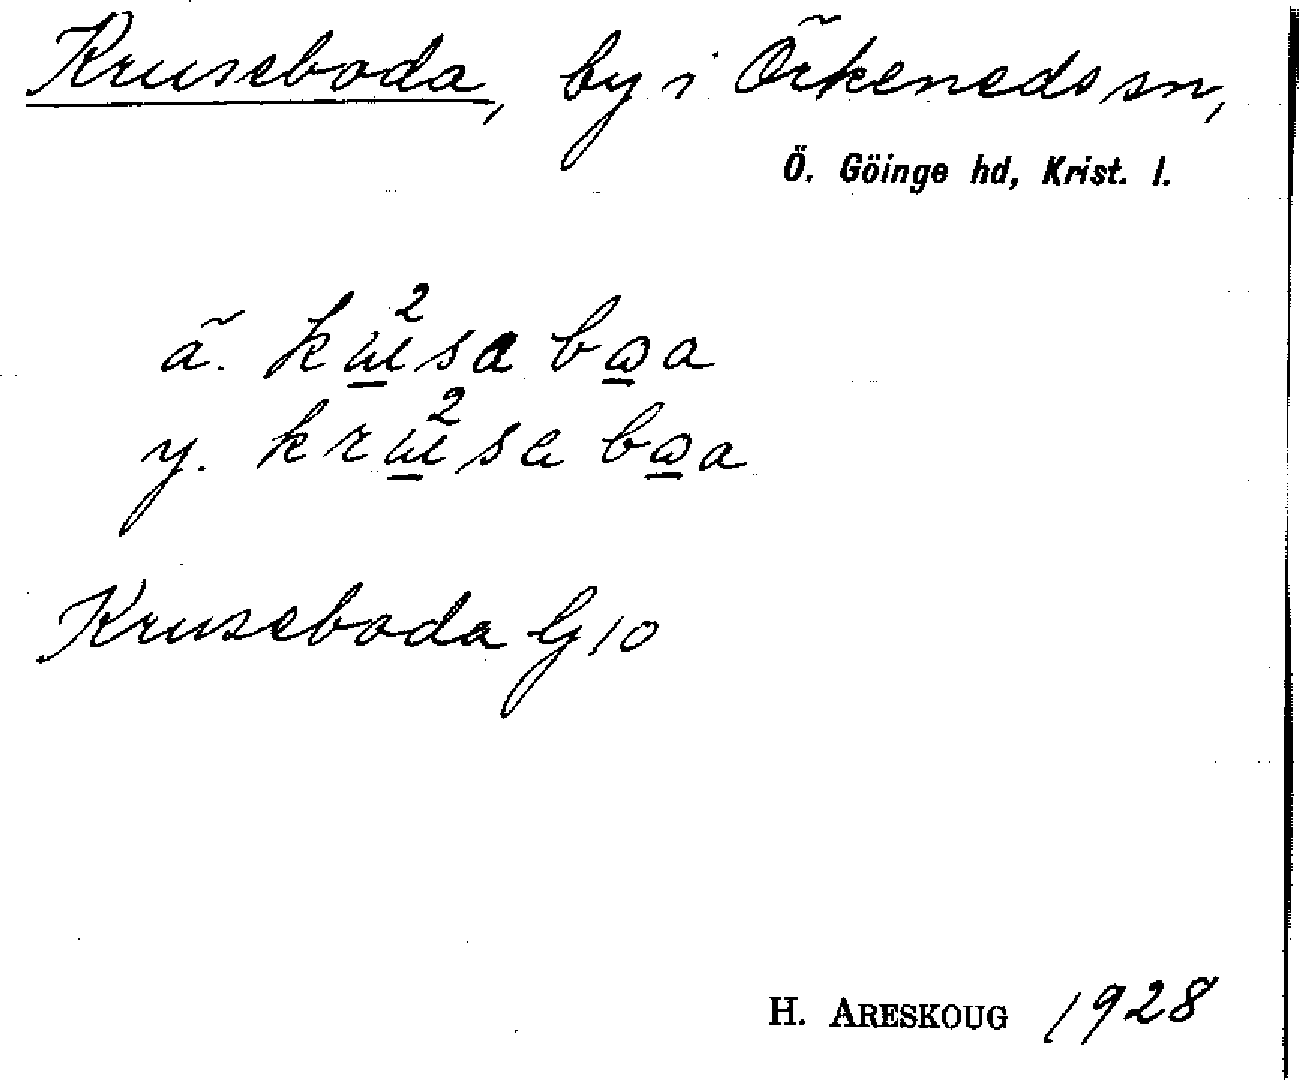 Kruseboda, by i Örkeneds sn,
Ö. Göinge hd, Krist. l.
ä. kɯ²sa bɷa
y. krɯ²sa bɷa
Kruseboda G 10
H. ARESKOUG 1928